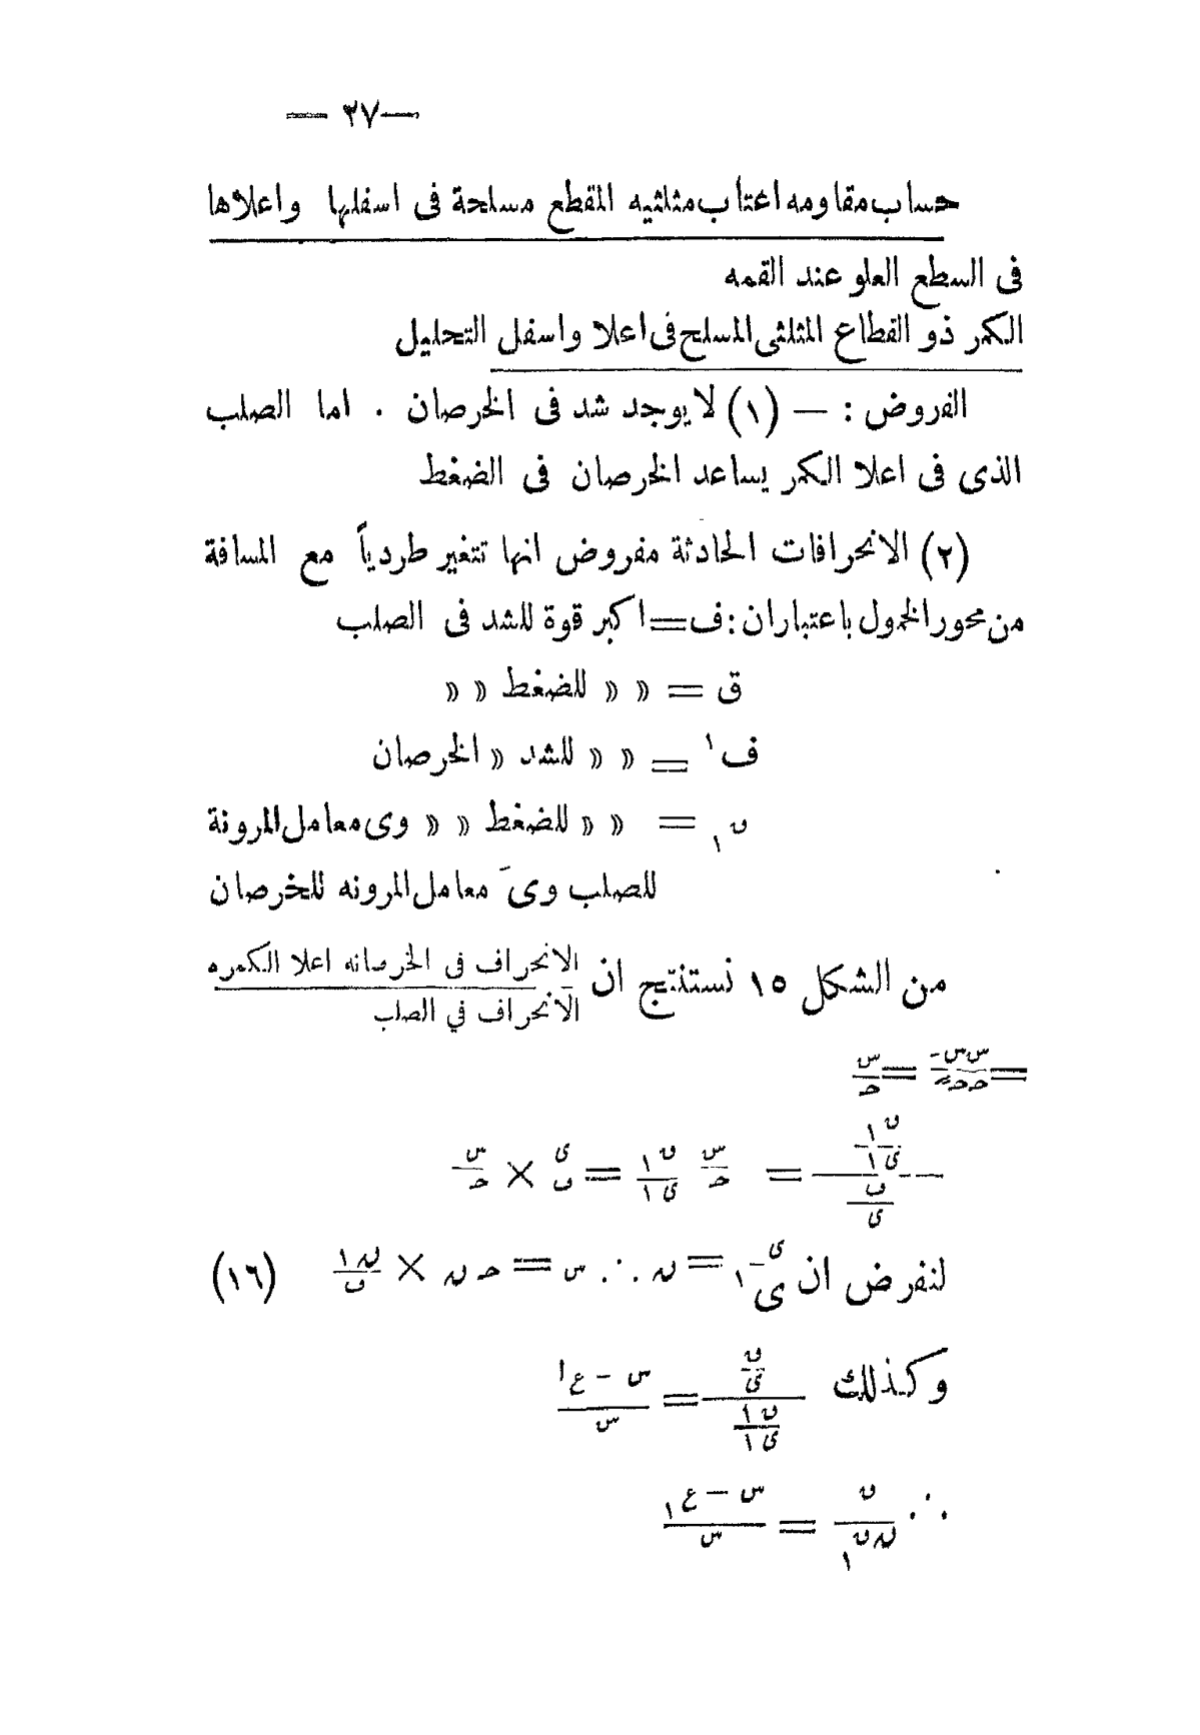 — ٣٧ —
حساب مقاومه اعتاب مثلثيه المقطع مسلحة فى اسفلها واعلاها
فى السطع العلو عند القمه
الكمر ذو القطاع المثلثى المسلح فى اعلا واسفل التحليل
الفروض : — (١) لا يوجد شد فى الخرصان . اما الصلب
الذى فى اعلا الكمر يساعد الخرصان فى الضغط
(٢) الانحرافات الحادثة مفروض انها تتغير طردياً مع المسافة
من محور الخمول باعتباران : ف = اكبر قوة للشد فى الصلب
ق = » » للضغط » »
ف١ = » » للشد » الخرصان
ق١ = » » للضغط » » وى معامل المرونة
للصلب وىَ معامل المرونه للخرصان
من الشكل ١٥ نستنتج ان الانحراف فى الخرصانه اعلا الكمره / الانحراف في الصلب
= س س- / ح ح = س / ح
ق١ / ى١ / ف / ى = س / ح ق١ / ى١ = ى / ف × س / ح
لنفرض ان ى / ى١ = ن ∴ س = ح ن × ق١ / ف (١٦)
وكذلك ق / ى / ق١ / ى١ = س – ع١ / س
∴ ق / ن ق١ = س – ع١ / س